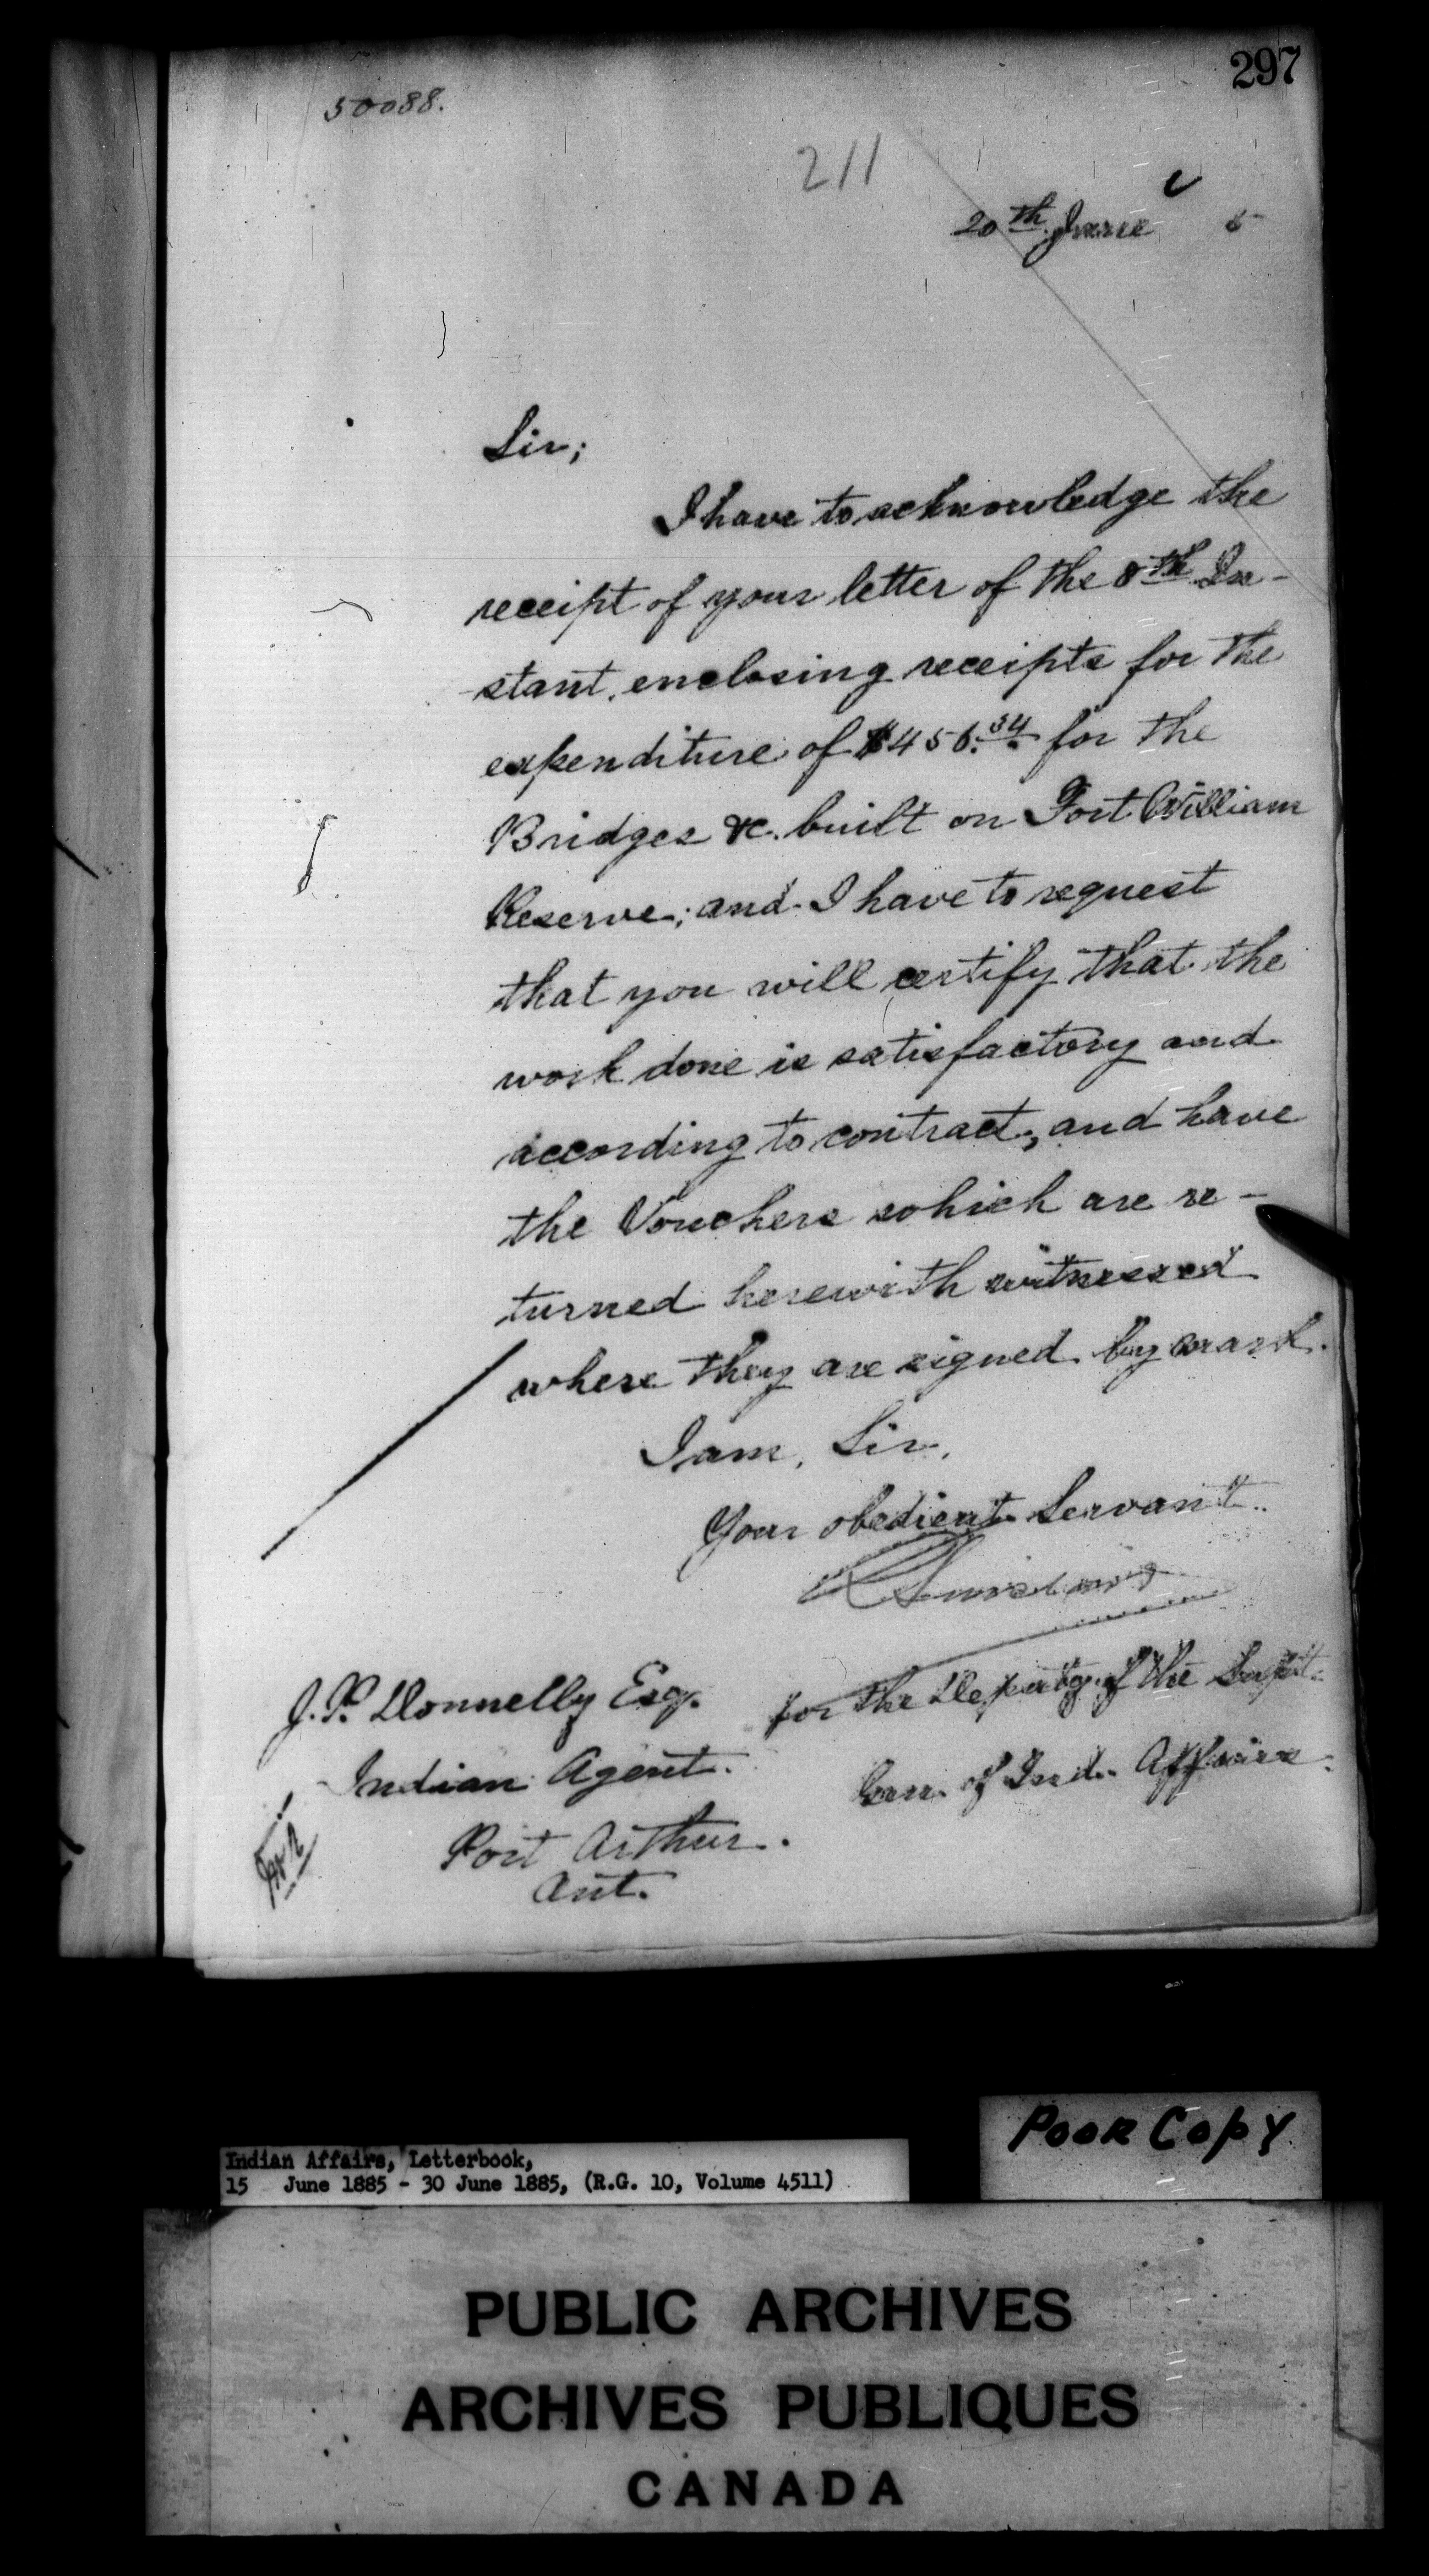 297
50088.
211
20th June 5
Sir;
I have to acknowledge the
receipt of your letter of the 8th In-
stant, enclosing receipts for the
expenditure of $456.34 for the
Bridges &c. built on Fort William
Reserve; and I have to request
that you will certify that the
work done is satisfactory and
according to contract, and have
the Vouchers which are re-
turned herewith witnessed
where they are signed by mark.
I am, Sir,
Your obedient Servant.
for the Deputy of the Supt.
Gen. of Ind. Affairs.
J. P. Donnelly Esq.
Indian Agent.
Port Arthur.
Ont.
Poor Copy
Indian Affairs, Letterbook,
15 June 1885 - 30 June 1885, (R.G. 10, Volume 4511)
PUBLIC ARCHIVES
ARCHIVES PUBLIQUES
CANADA